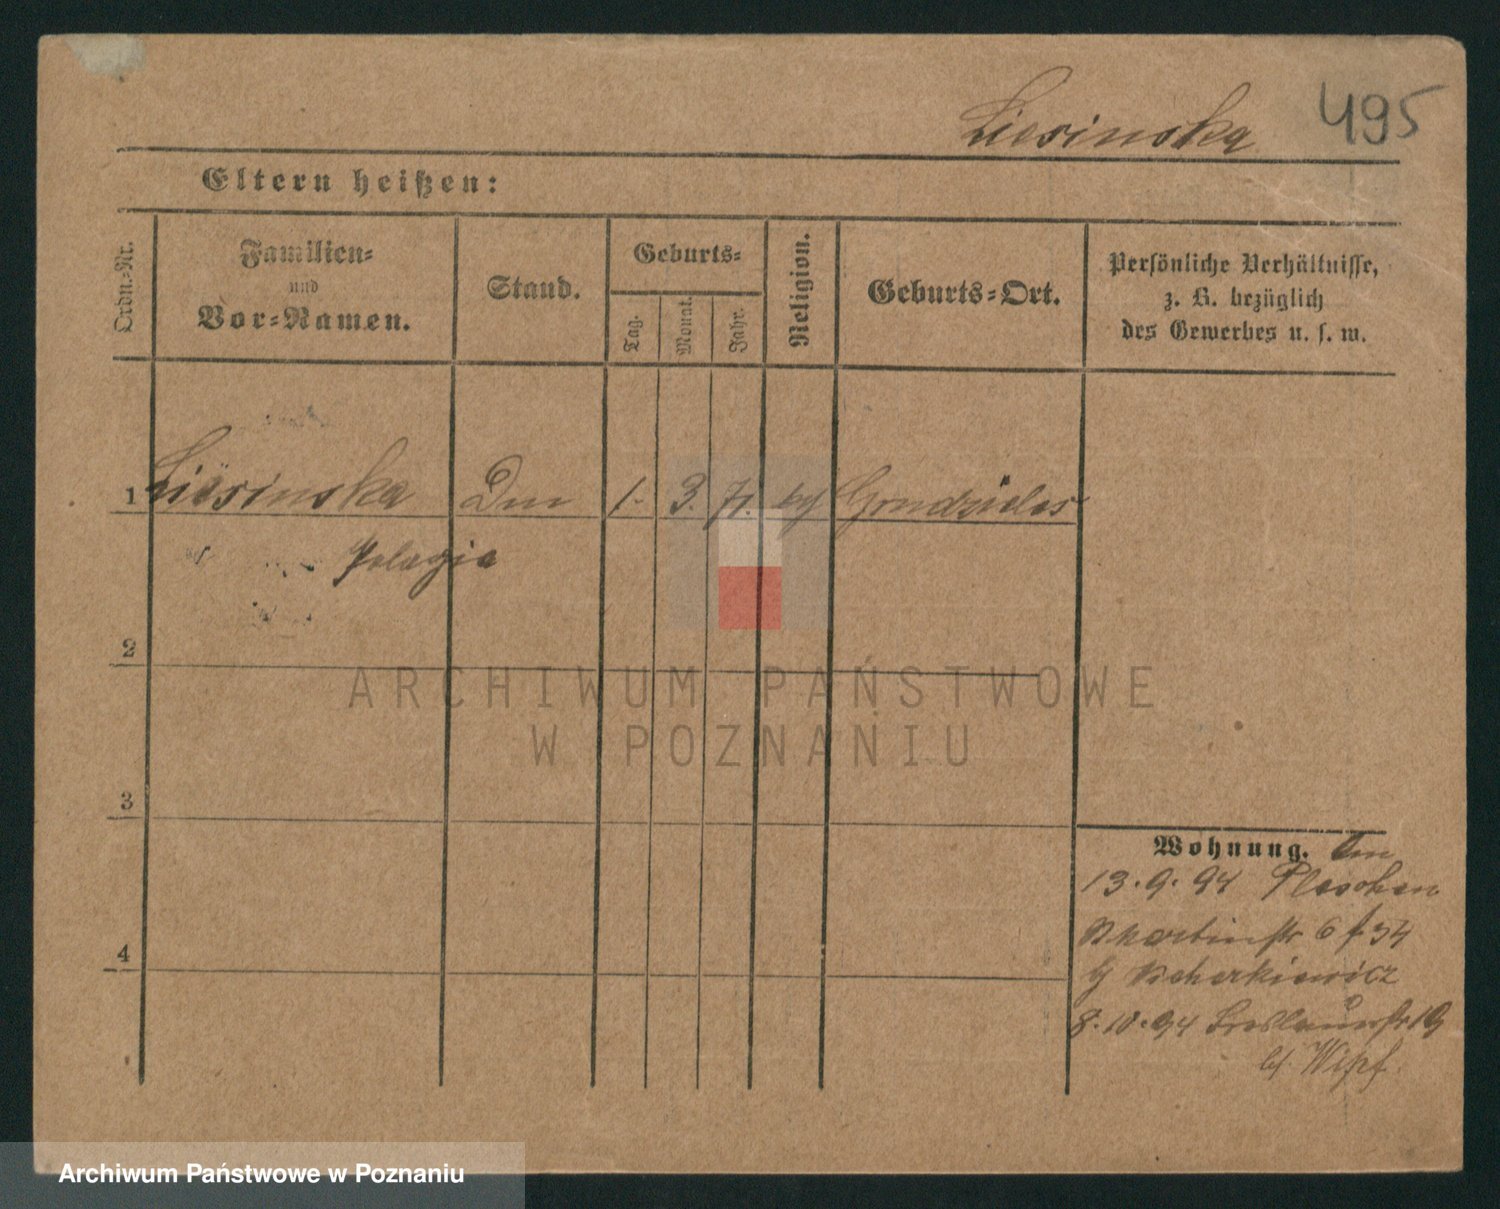 Liesinska 495
Eltern heißen:
Ordn.-Nr.
Familien-
und
Vor-Namen.
Stand.
Geburts-
Tag.
Monat.
Jahr.
Religion.
Geburts-Ort.
Persönliche Verhältnisse,
z. B. bezüglich
des Gewerbes u. s. w.
1 Liesinska 1. 3. 71. Gondzielas
Pelagia
2
ARCHIWUM PAŃSTWOWE
W POZNANIU
3
Wohnung.
13.9.94 Pleschen
Martinstr 6
4
8.10.94 Breslauerstr 19
Archiwum Państwowe w Poznaniu